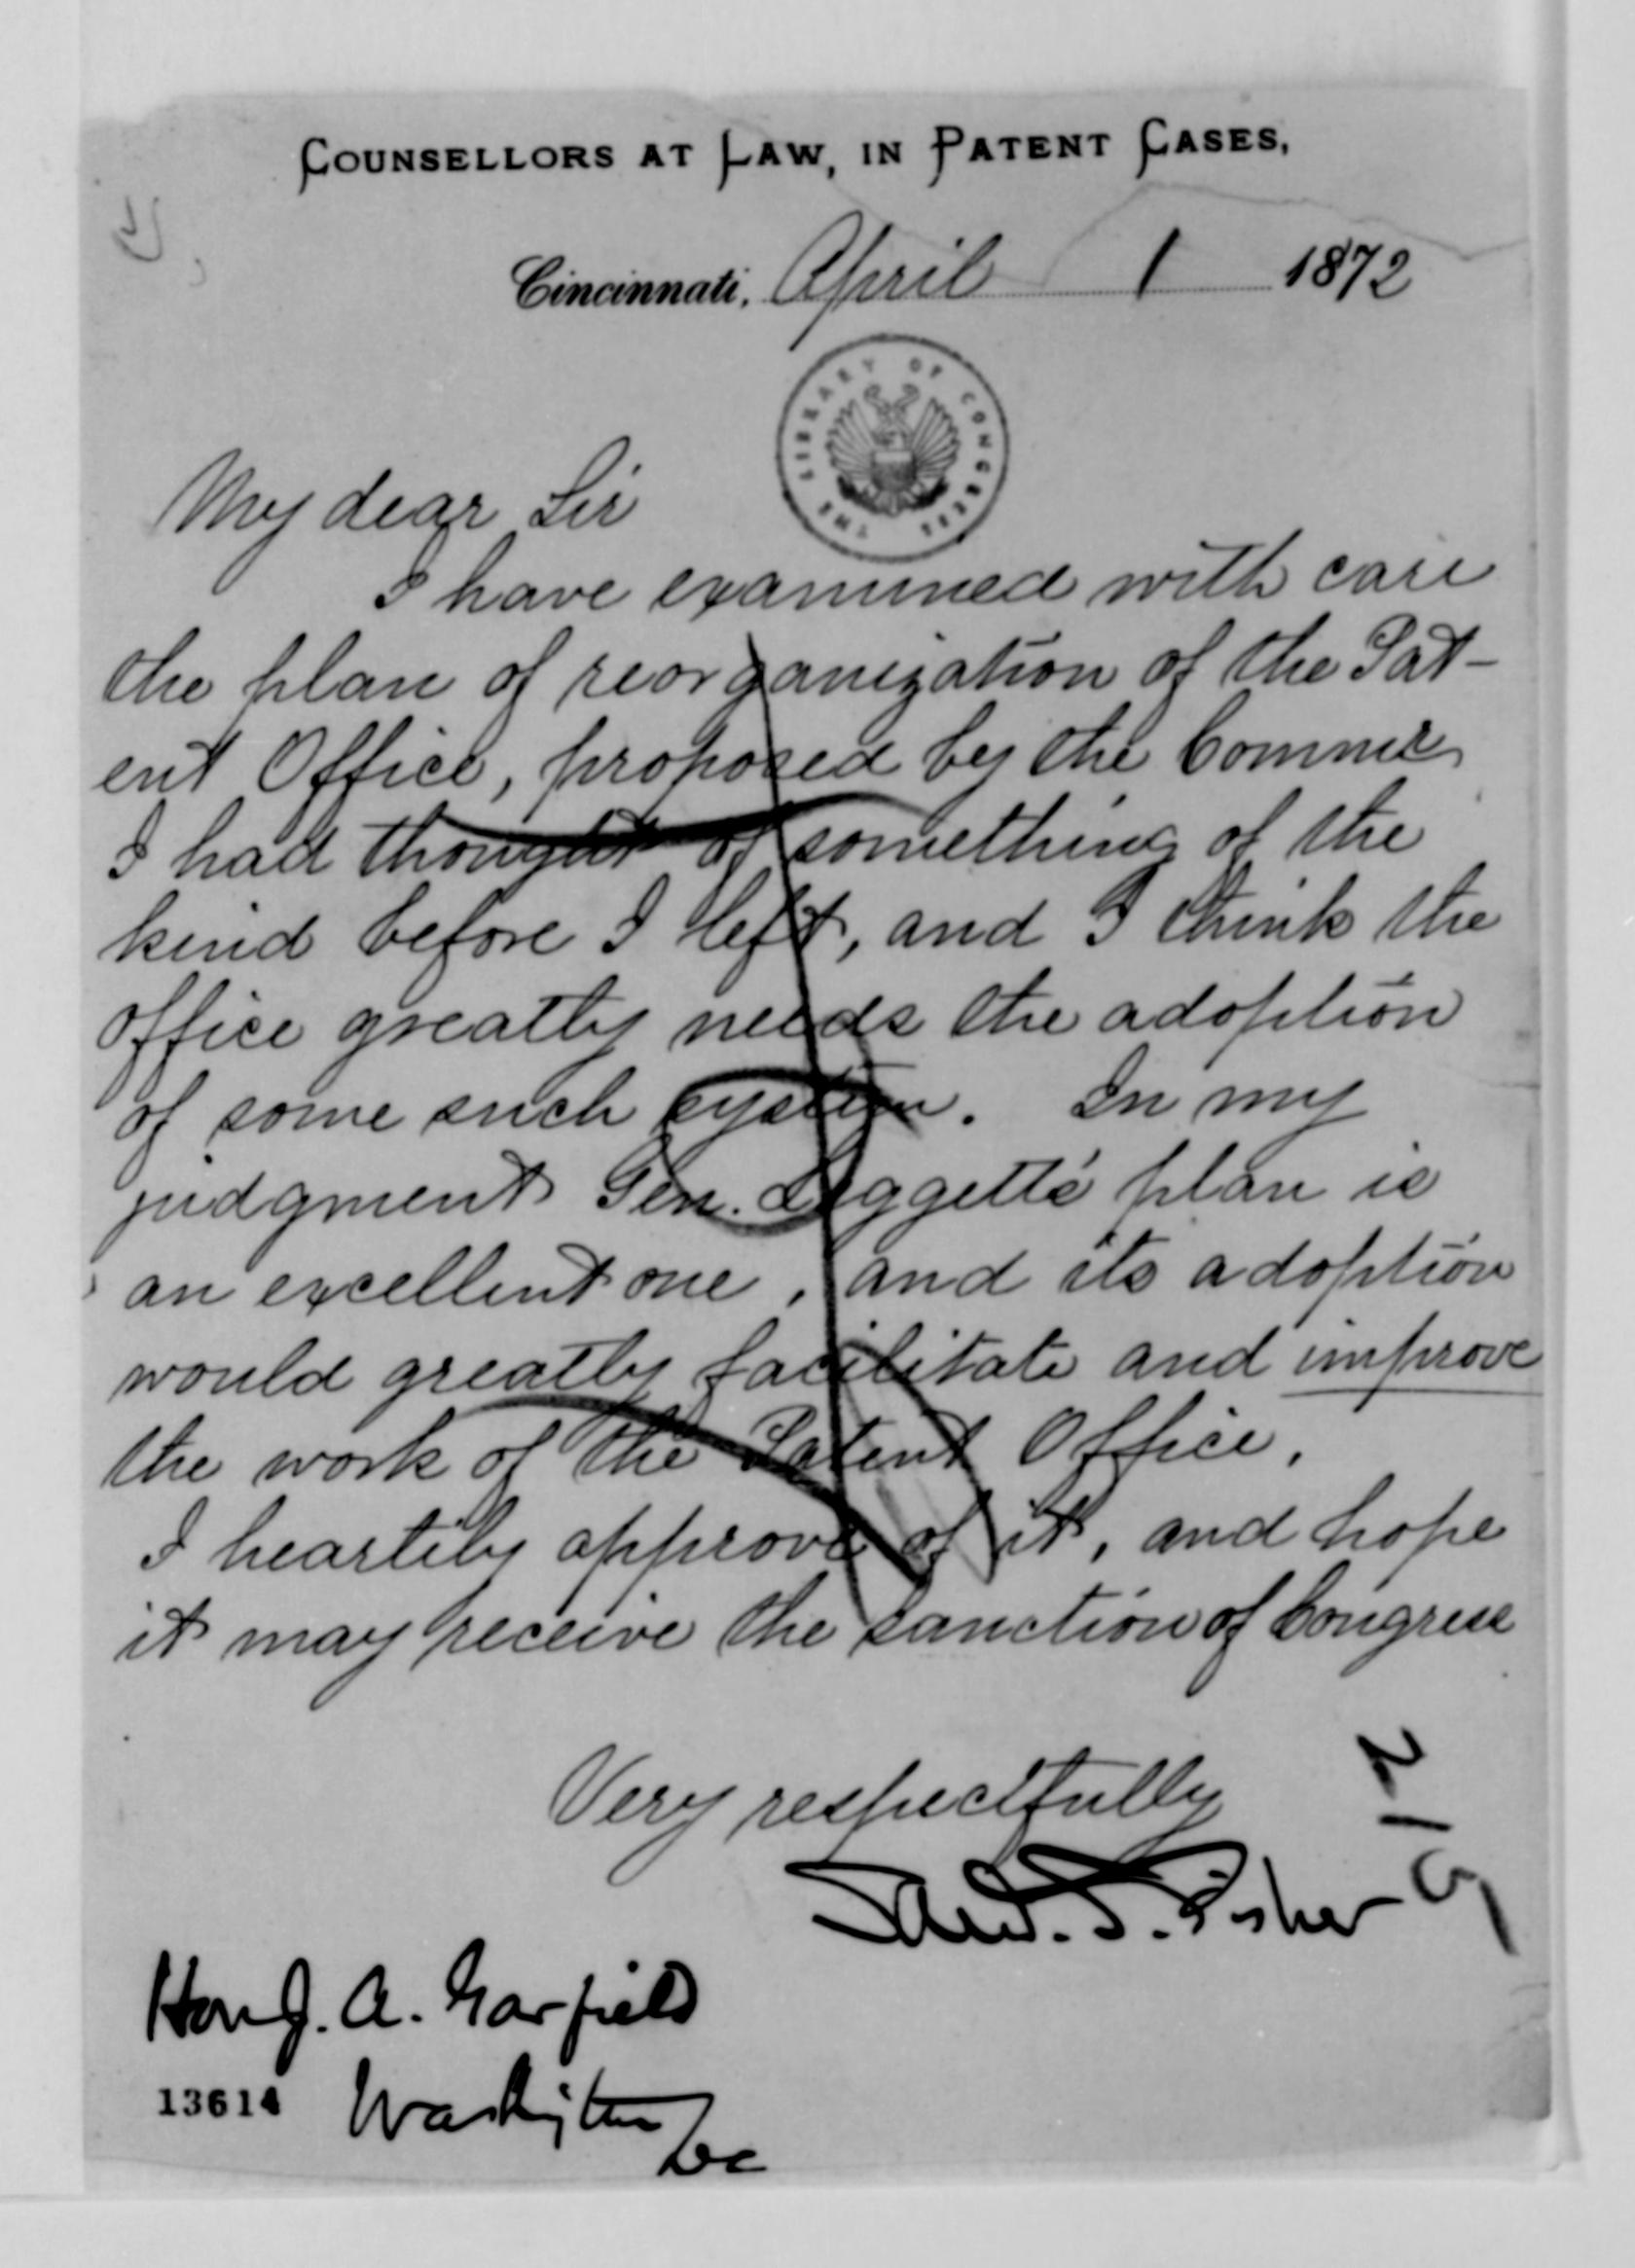 COUNSELLORS AT LAW, IN PATENT CASES,
Cincinnati, April 1 1872
THE LIBRARY OF CONGRESS
My dear Sir
I have examined with care
the plan of reorganization of the Pat-
ent Office, proposed by the Commr.
I had thought of something of the
kind before I left, and I think the
office greatly needs the adoption
of some such system. In my
judgment Gen. Leggett's plan is
an excellent one, and its adoption
would greatly facilitate and improve
the work of the Patent Office.
I heartily approve of it, and hope
it may receive the sanction of Congress
Very respectfully
S. S. Fisher
Hon J. A. Garfield
13614 Washington
DC